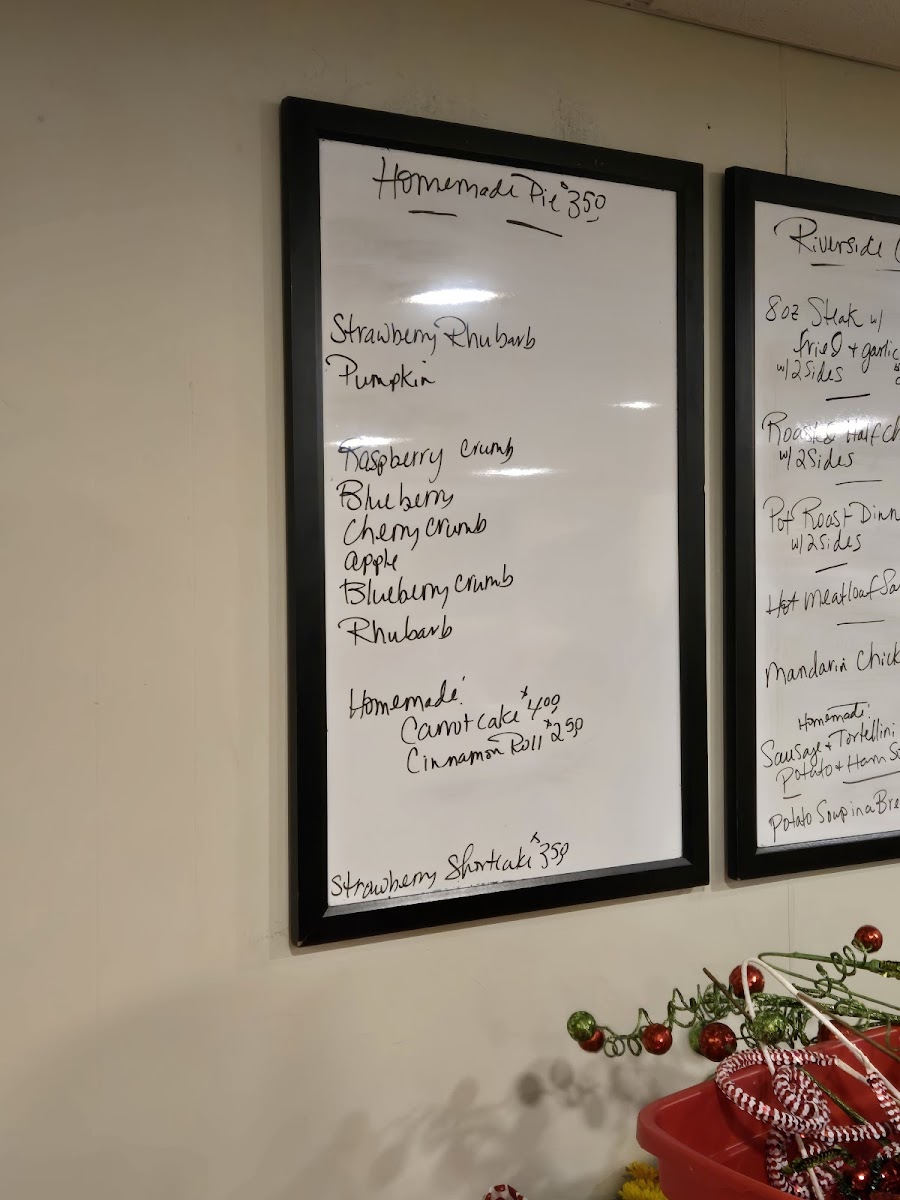 Homemade Pie $350
Strawberry Rhubarb
Pumpkin
Raspberry Crumb
Blueberry
Cherry Crumb
apple
Blueberry Crumb
Rhubarb
Homemade:
Carrot cake $400
Cinnamon Roll $250
Strawberry Shortcake $350
Riverside
8oz Steak w/
fried + garlic
w/2 Sides
Roasted Half Ch
w/2 Sides
Pot Roast Dinn
w/2 sides
Hot meatloaf Sa
Mandarin Chick
Homemade:
Sausage + Tortellini
Potato + Ham So
Potato Soup in a Bre